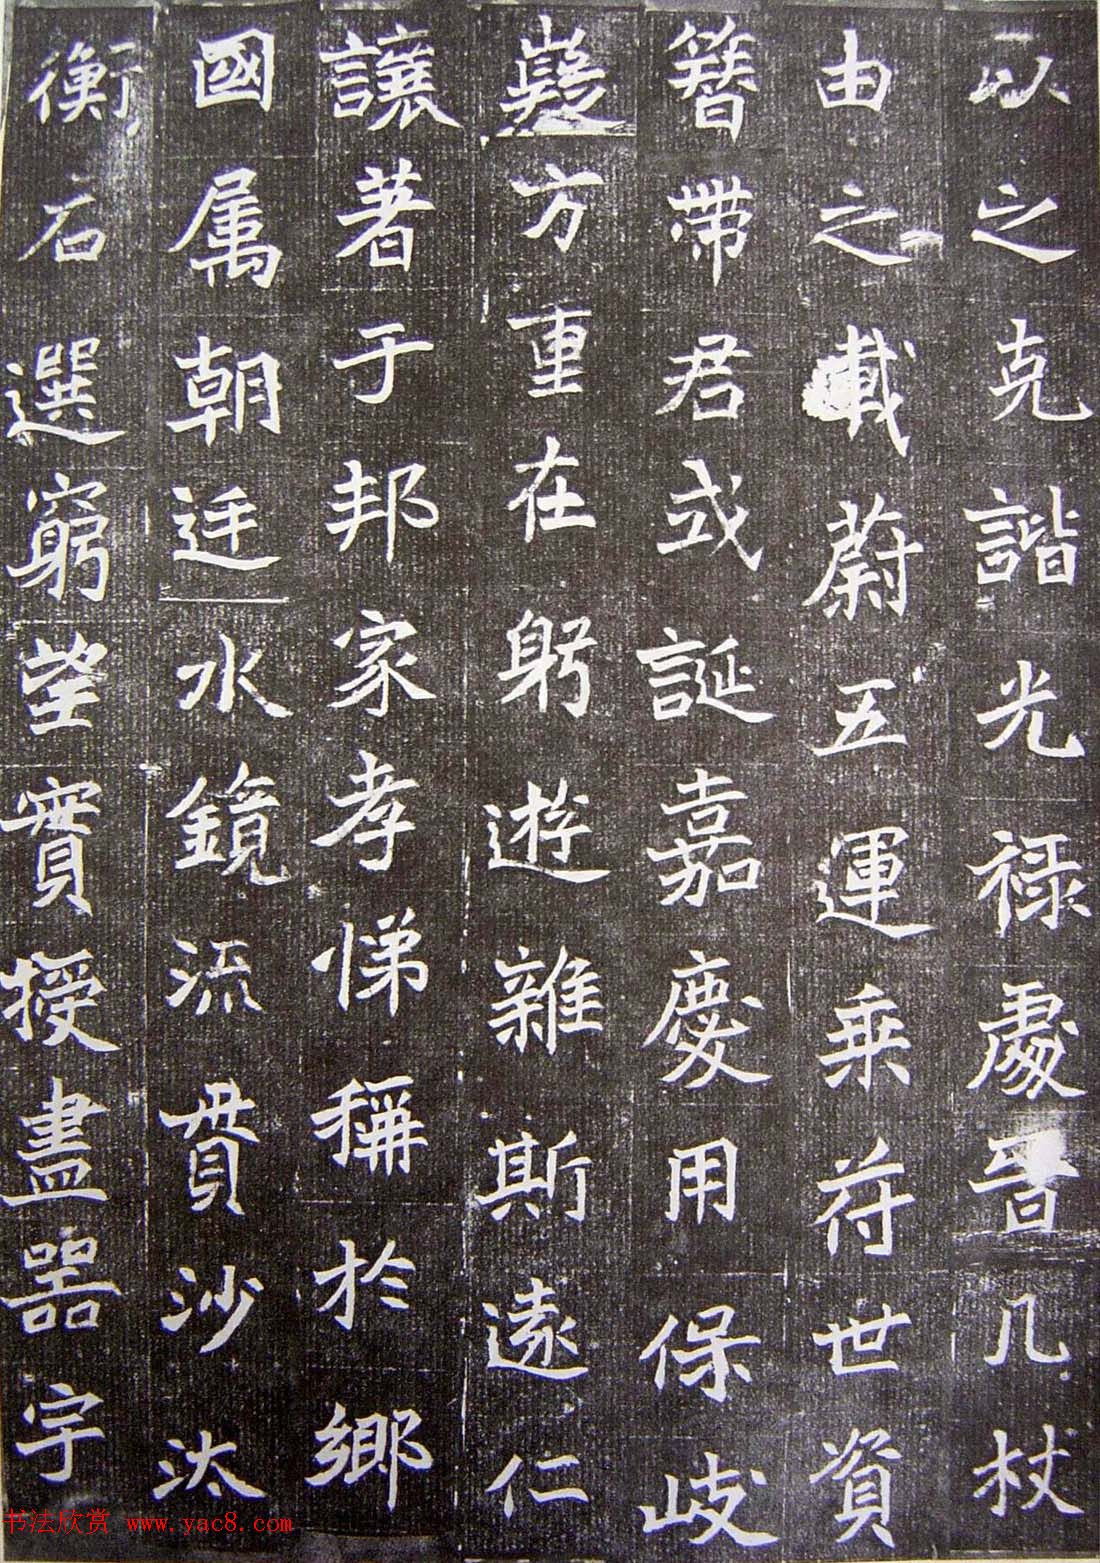 以之克諧光禄處晉几杖
由之載蔚五運乗苻世資
簪帶君或誕嘉慶用保岐
嶷方重在躬遊雜斯遠仁
讓著于邦家孝悌稱於鄉
國属朝廷水鏡流貫沙汰
衡石選窮望實授盡器宇
书法欣赏 www.yac8.com